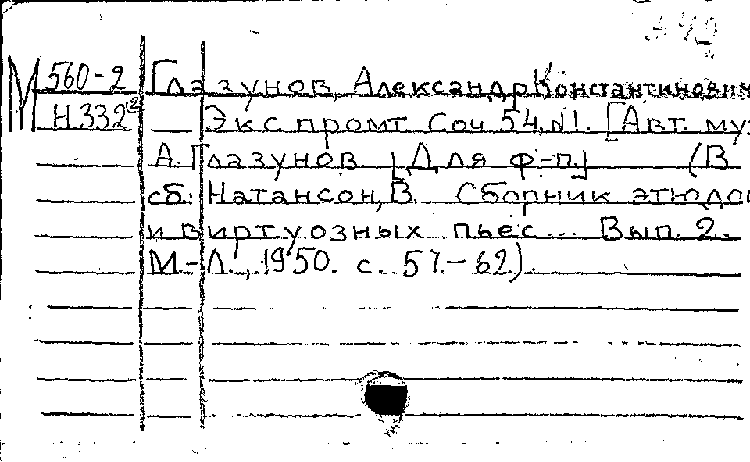 М 560-2 Глазунов, Александр Константинович
Н 332² Экспромт. Соч 54, №1. [Авт. муз.
А. Глазунов] [Для ф-п.] (В
сб: Натансон, В. Сборник этюдов
и виртуозных пьес... Вып. 2.
М.-Л., 1950. с. 57.-62.)